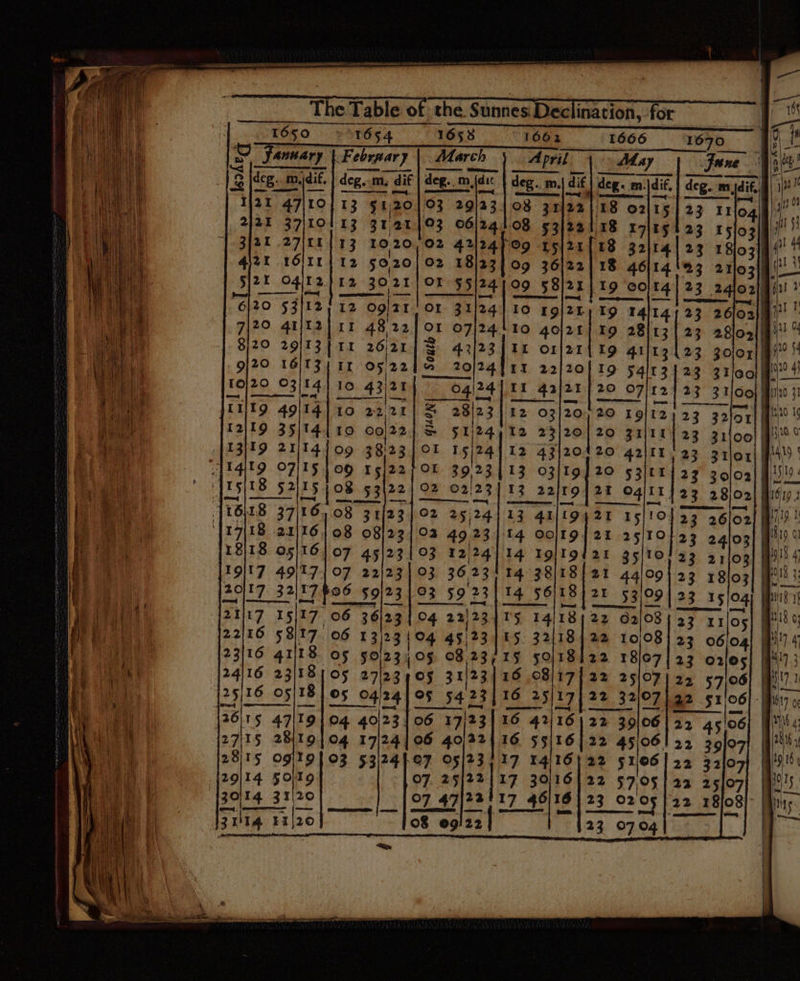 The Table of the Sunnes Declination, for
1650 1654 1658 1662 1666 1670
Days January February March April May June
deg. m. dif. deg. m. dif deg. m. dif deg. m. dif deg. m. dif. deg. m. dif.
1 21 47 10 13 51 20 03 29 23 08 31 22 18 02 15 23 11 04
2 21 37 10 13 31 21 03 06 24 08 53 22 18 17 15 23 15 03
3 21 27 11 13 10 20 02 42 24 09 15 21 18 32 14 23 18 03
4 21 16 11 12 50 20 02 18 23 09 36 22 18 46 14 23 21 03
5 21 04 12 12 30 21 01 55 24 09 58 21 19 00 14 23 24 02
6 20 53 12 12 09 21 01 31 24 10 19 21 19 14 14 23 26 02
7 20 41 12 11 48 22 01 07 24 10 40 21 19 28 13 23 28 02
8 20 29 13 11 26 21 South 43 23 11 01 21 19 41 13 23 30 01
9 20 16 13 11 05 22 20 24 11 22 20 19 54 13 23 31 00
10 20 03 14 10 43 21 04 24 11 42 21 20 07 12 23 31 00
11 19 49 14 10 22 21 North 28 23 12 03 20 20 19 12 23 32 01
12 19 35 14 10 00 22 51 24 12 23 20 20 31 11 23 31 00
13 19 21 14 09 38 23 01 15 24 12 43 20 20 42 11 23 31 01
14 19 07 15 09 15 22 01 39 23 13 03 19 20 53 11 23 30 02
15 18 52 15 08 53 22 02 02 23 13 22 19 21 04 11 23 28 02
16 18 37 16 08 31 23 02 25 24 13 41 19 21 15 10 23 26 02
17 18 21 16 08 08 23 02 49 23 14 00 19 21 25 10 23 24 03
18 18 05 16 07 45 23 03 12 24 14 19 19 21 35 10 23 21 03
19 17 49 17 07 22 23 03 36 23 14 38 18 21 44 09 23 18 03
20 17 32 17 06 59 23 03 59 23 14 56 18 21 53 09 23 15 04
21 17 15 17 06 36 23 04 22 23 15 14 18 22 02 08 23 11 05
22 16 58 17 06 13 23 04 45 23 15 32 18 22 10 08 23 06 04
23 16 41 18 05 50 23 05 08 23 15 50 18 22 18 07 23 02 05
24 16 23 18 05 27 23 05 31 23 16 08 17 22 25 07 22 57 06
25 16 05 18 05 04 24 05 54 23 16 25 17 22 32 07 22 51 06
26 15 47 19 04 40 23 06 17 23 16 42 16 22 39 06 22 45 06
27 15 28 19 04 17 24 06 40 22 16 55 16 22 45 06 22 39 07
28 15 09 19 03 53 24 07 05 23 17 14 16 22 51 06 22 32 07
29 14 50 19 07 25 22 17 30 16 22 57 05 22 25 07
30 14 31 20 07 47 22 17 46 16 23 02 05 22 18 08
31 14 11 20 08 09 22 23 07 04